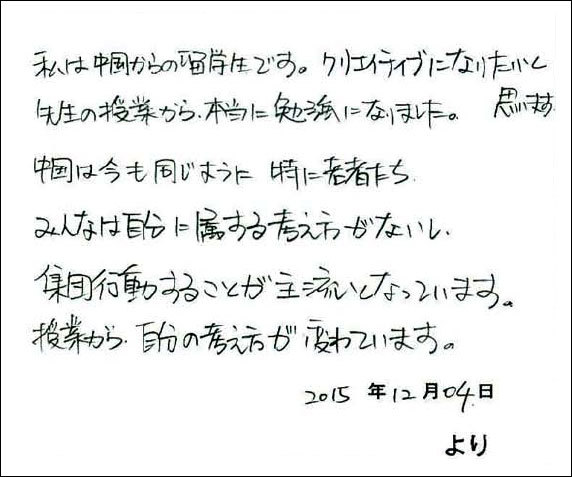 私は中国からの留学生です。クリエイティブになりたいと
思います
先生の授業から、本当に勉強になりました。
中国は今も同じように 特に若者たち、
みんなは自分に属する考え方がないし、
集団行動することが主流になっています。
授業から、自分の考え方が変わています。
2015 年 12 月 04 日
より